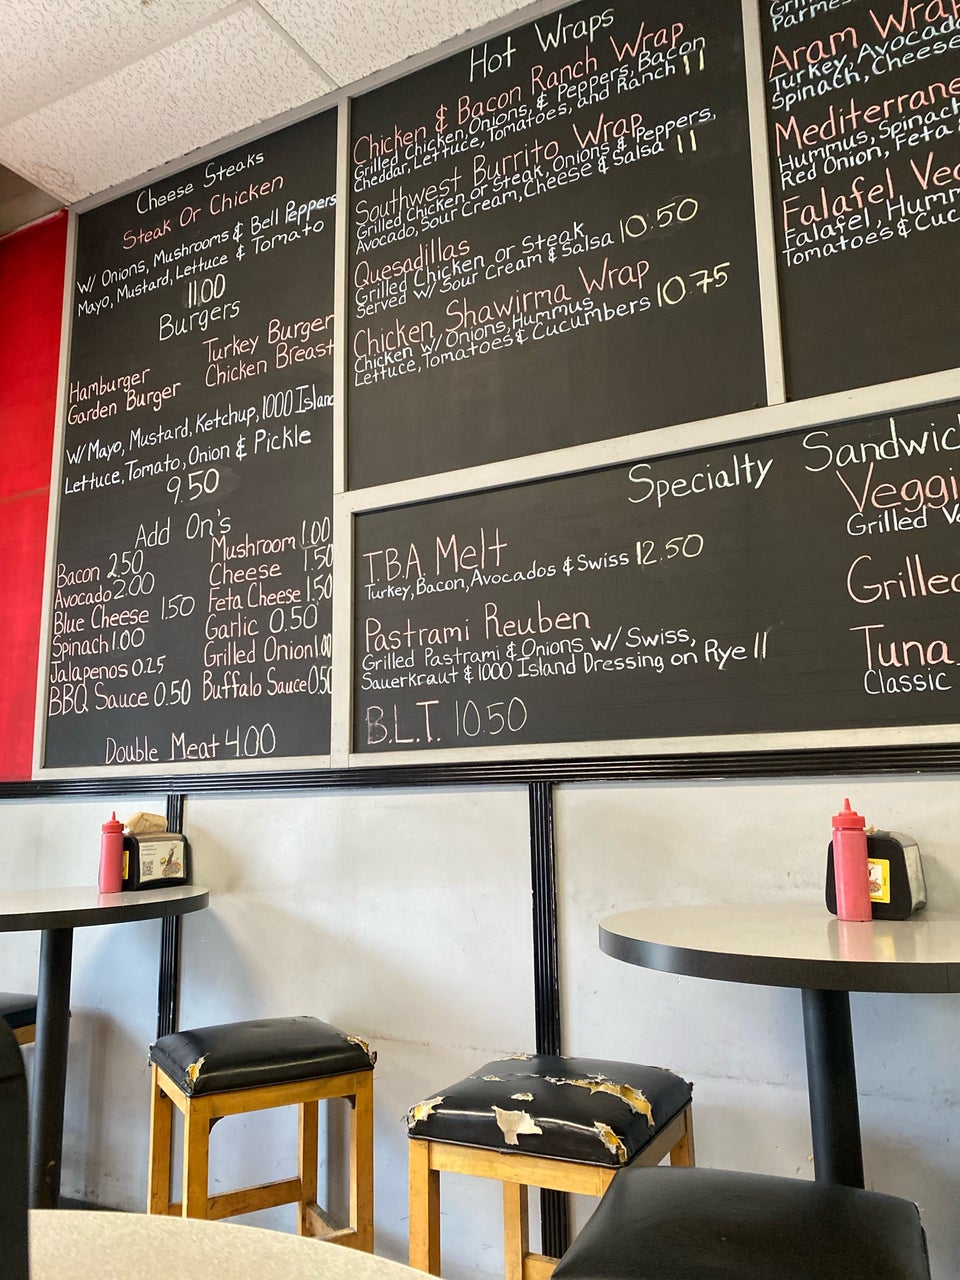 Cheese Steaks
Steak Or Chicken
W/ Onions, Mushrooms & Bell Peppers
Mayo, Mustard, Lettuce & Tomato
11.00
Burgers
Hamburger
Garden Burger
Turkey Burger
Chicken Breast
W/ Mayo, Mustard, Ketchup, 1000 Island
Lettuce, Tomato, Onion & Pickle
9.50
Add On's
Bacon 2.50
Avocado 2.00
Blue Cheese 1.50
Spinach 1.00
Jalapenos 0.25
BBQ Sauce 0.50
Mushroom 1.00
Cheese 1.50
Feta Cheese 1.50
Garlic 0.50
Grilled Onion 1.00
Buffalo Sauce 0.50
Double Meat 4.00
Hot Wraps
Chicken & Bacon Ranch Wrap
Grilled Chicken, Onions, & Peppers, Bacon
Cheddar, Lettuce, Tomatoes, and Ranch 11
Southwest Burrito Wrap
Grilled Chicken or Steak, Onions & Peppers,
Avocado, Sour Cream, Cheese & Salsa 11
Quesadillas
Grilled Chicken or Steak
Served w/ Sour Cream & Salsa 10.50
Chicken Shawirma Wrap
Chicken w/ Onions, Hummus
Lettuce, Tomatoes & Cucumbers 10.75
Aram Wrap
Turkey, Avocado
Spinach, Cheese
Mediterrane
Hummus, Spinach
Red Onion, Feta &
Falafel Veg
Falafel, Humm
Tomatoes & Cuc
Specialty Sandwic
T.B.A. Melt
Turkey, Bacon, Avocados & Swiss 12.50
Pastrami Reuben
Grilled Pastrami & Onions w/ Swiss,
Sauerkraut & 1000 Island Dressing on Rye 11
B.L.T. 10.50
Veggi
Grilled Ve
Grilled
Tuna
Classic